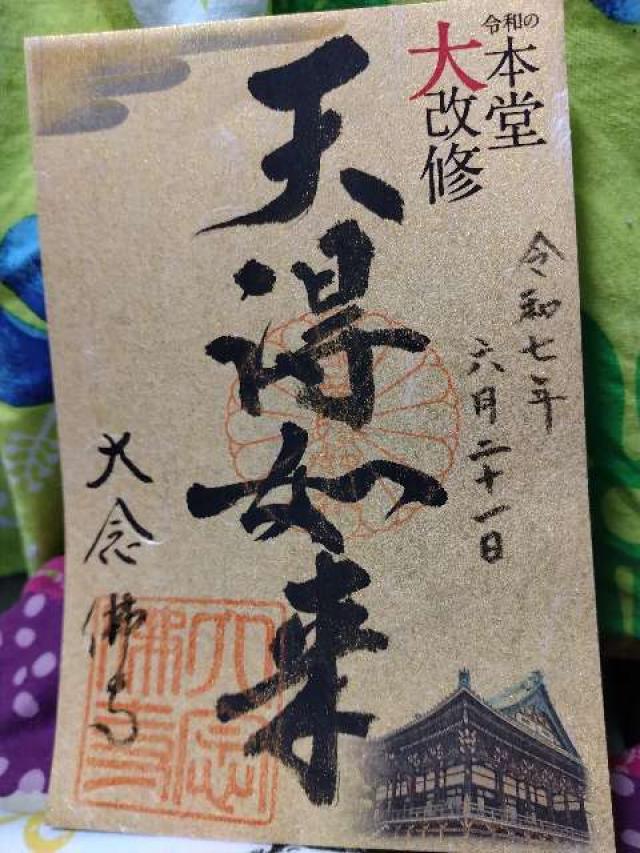 令和の
本堂
大改修
令和七年
六月二十一日
天得如来
大念佛寺
大念佛寺